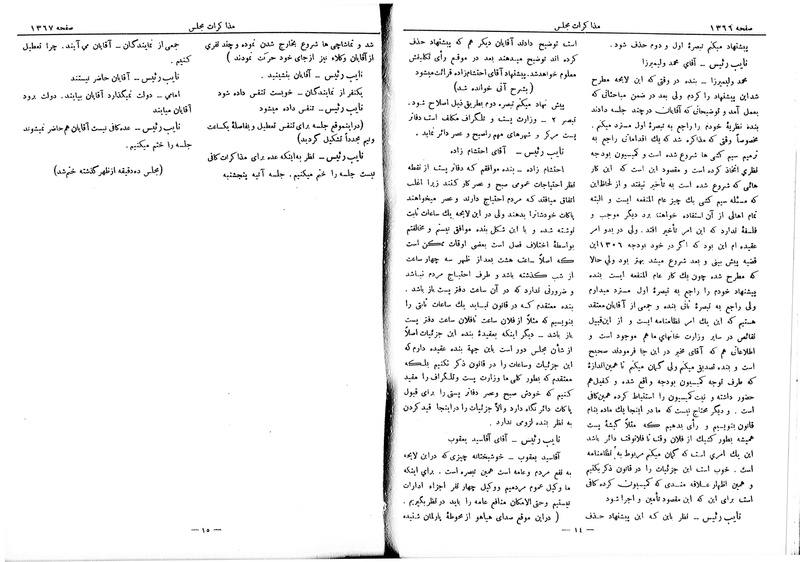 صفحه ۱۳۶۶
مذاکرات مجلس
پیشنهاد میکنم تبصرۀ اول و دوم حذف شود.
نایب رئیس – آقای محمد ولیمیرزا
محمد ولیمیرزا – بنده در وقتی که این لایحه مطرح
شد این پیشنهاد را کردم ولی بعد در ضمن مباحثاتی که
بعمل آمد و توضیحاتی که آقایان در چند جلسه دادند
بنده نظریۀ خودم را راجع به تبصرۀ اول مسترد میکنم.
مخصوصاً وقتی که مذاکره شد که یک اقداماتی راجع به
ترمیم سیم کشی ها شروع شده است و کمیسیون بودجه
نظری اتخاذ کرده است و مقصود این است که این کار
هائی که شروع شده است به تأخیر نیفتد و از لحاظ این
که مسئله سیم کشی یک چیز عام المنفعه ایست و البته
تمام اهالی از آن استفاده خواهند برد دیگر موجب و
فلسفۀ ندارد که این امر تأخیر افتد. ولی در بدو امر
عقیده ام این بود که اگر در خود بودجه ۱۳۰۶ این
قضیه پیش بینی و بعد شروع میشد بهتر بود ولی حالا
که مطرح شده چون یک کار عام المنفعه ایست بنده
پیشنهاد خودم را راجع به تبصرۀ اول مسترد میدارم
ولی راجع به تبصرۀ ثانی بنده و جمعی از آقایان معتقد
هستیم که این یک امر نظامنامه ایست و از این قبیل
نقائص در سایر وزارت خانهای ما هم موجود است و
اطلاعاتی هم که آقای مخبر در این جا فرمودند صحیح
است و بنده تصدیق میکنم ولی گمان میکنم تا همین اندازۀ
که طرف توجه کمیسیون بودجه واقع شده و کفیل هم
حضور داشته و نیت کمیسیون را استنباط کرده همین کافی
است. و دیگر محتاج نیست که ما در اینجا یک ماده بنام
قانون بنویسیم و رأی بدهیم که مثلاً گیشۀ پست
همیشه بطور کشیک از فلان وقت تا فلان وقت دائر باشد
این یک امری است که گمان میکنم مربوط به نظامنامه
است. خوب است این جزئیات را در قانون ذکر نکنیم
و همین اظهار علاقه مندی که کمیسیون کرده کافی
است برای این که این مقصود تأمین و اجرا شود
نایب رئیس – نظر باین که این پیشنهاد حذف
است توضیح دادند آقایان دیگر هم که پیشنهاد حذف
کرده اند توضیح میدهند بعد در موقع رأی تکلیفش
معلوم خواهد شد. پیشنهاد آقای احتشام زاده قرائت میشود
(بشرح آتی خوانده شد)
پیش نهاد میکنم تبصره دوم بطریق ذیل اصلاح شود.
تبصره ۲ – وزارت پست و تلگراف مکلف است دفاتر
پست مرکز و شهرهای مهم را صبح و عصر دائر نماید.
نایب رئیس – آقای احتشام زاده
احتشام زاده – بنده موافقم که دفاتر پست از نقطه
نظر احتیاجات عمومی صبح و عصر کار کنند زیرا اغلب
اتفاق میافتد که مردم احتیاج دارند و عصر میخواهند
پاکات خودشانرا بدهند ولی در این لایحه یک ساعات ثابت
نوشته شده و با این شکل بنده موافق نیستم و مخالفتم
بواسطۀ اختلاف فصل است بعضی اوقات ممکن است
که اصلاً ساعت هشت بعد از ظهر سه چهار ساعت
از شب گذشته باشد و طرف احتیاج مردم نباشد
و ضرورتی ندارد که در آن ساعت دفتر پست باز باشد.
بنده معتقدم که در قانون نباید یک ساعات ثابتی را
بنویسیم که مثلاً از فلان ساعت تا فلان ساعت دفتر پست
باز باشد – دیگر اینکه بعقیدۀ بنده این جزئیات اصلاً
از شأن مجلس دور است باین جهة بنده عقیده دارم که
این جزئیات و ساعات را در قانون ذکر نکنیم بلکه
معتقدم که بطور کلی ما وزارت پست و تلگراف را مقید
کنیم که خودش صبح و عصر دفاتر پستی را برای قبول
پاکات دائر نگاه دارد والا جزئیات را در اینجا قید کردن
به نظر بنده لزومی ندارد.
نایب رئیس – آقای آقاسید یعقوب
آقاسید یعقوب – خوشبختانه چیزی که در این لایحه
به نفع مردم و عامه است همین تبصره است. برای اینکه
ما وکیل عموم مردمیم و وکیل چهار نفر اجزاء ادارات
نیستیم و حتی الامکان منافع عامه را باید در نظر بگیریم.
(در این موقع صدای هیاهو از محوطۀ پارلمان شنیده
– ۱۴ –
مذاکرات مجلس
صفحه ۱۳۶۷
شد و تماشاچی ها شروع بخارج شدن نموده و چند نفری
از آقایان وکلاء نیز از جای خود حرکت نمودند)
نایب رئیس – آقایان بنشینید.
یکنفر از نمایندگان – خوبست تنفس داده شود
نایب رئیس – تنفس داده میشود
(در این موقع جلسه برای تنفس تعطیل و بفاصلۀ یکساعت
و نیم مجدداً تشکیل گردید)
نایب رئیس – نظر به اینکه عده برای مذاکرات کافی
نیست جلسه را ختم میکنیم. جلسه آتیه پنجشنبه
جمعی از نمایندگان – آقایان می آیند. چرا تعطیل
کنیم.
نایب رئیس – آقایان حاضر نیستند
امامی – دولت نمیگذارد آقایان بیایند. دولت برود
آقایان میایند
نایب رئیس – عده کافی نیست آقایان هم حاضر نمیشوند
جلسه را ختم میکنیم.
(مجلس ده دقیقه از ظهر گذشته ختم شد)
– ۱۵ –